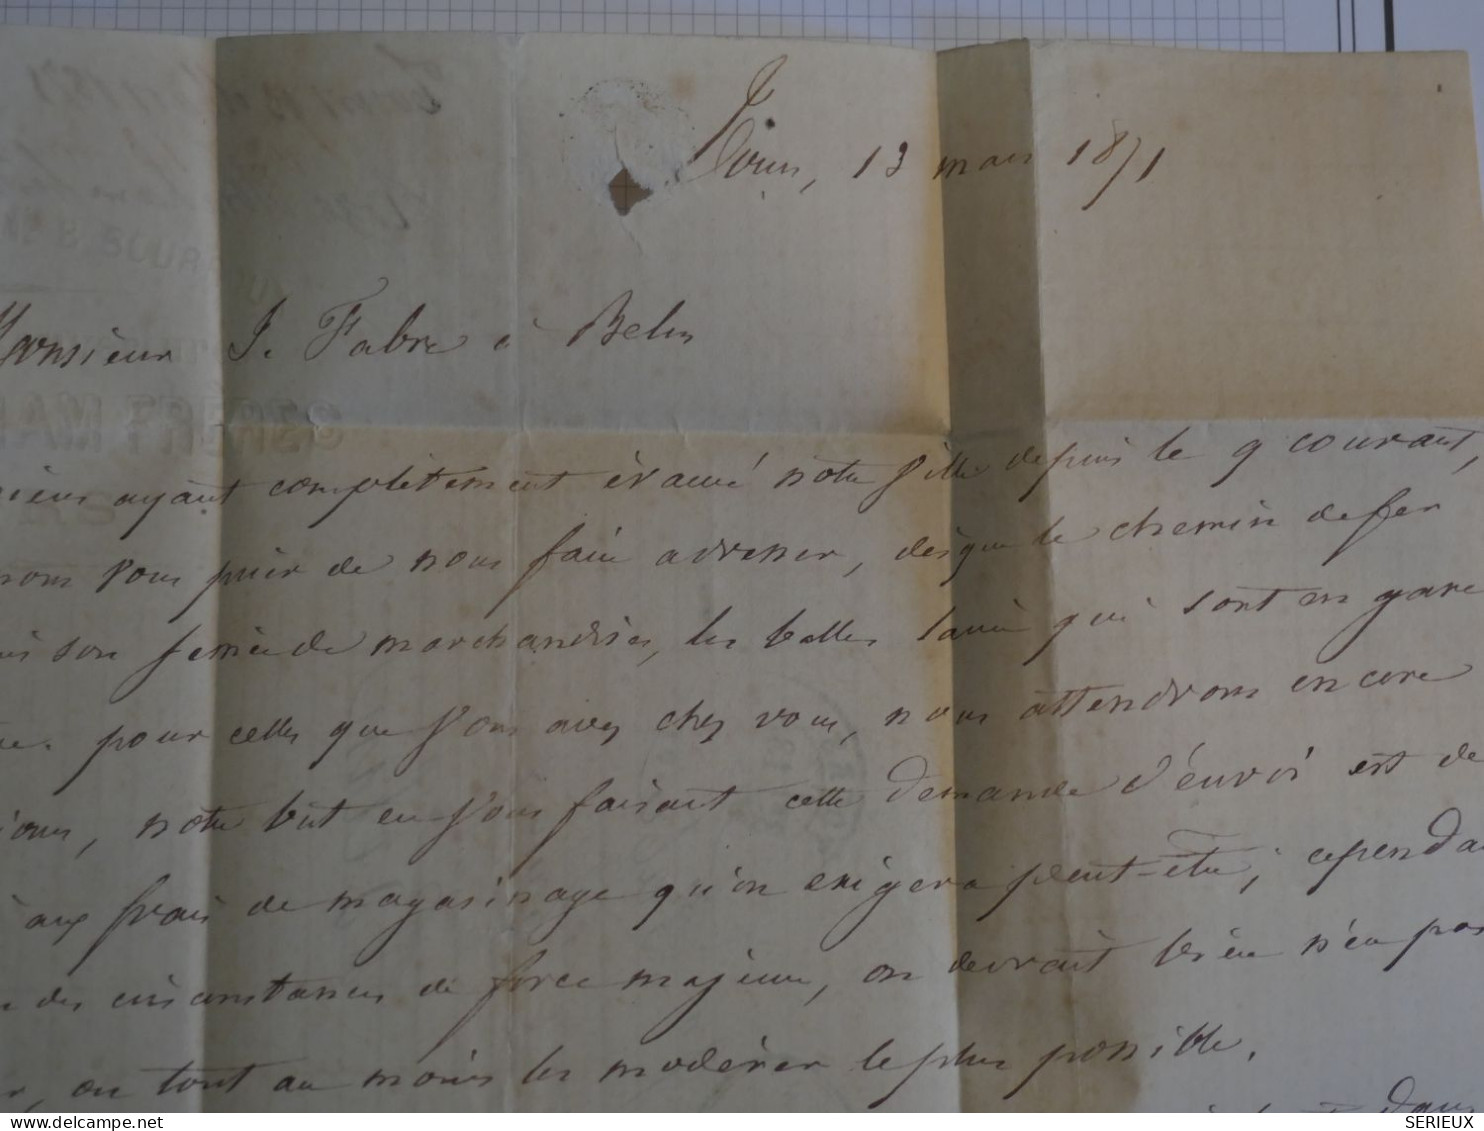 Tours, 13 mars 1871
Monsieur J. Fabre à Belin
ayant complètement évacué notre Ville depuis le 9 courant,
Vous prier de nous faire adresser, dès que le chemin de fer
son service de marchandises, les balles laine qui sont en gare
pour celles que Vous avez chez vous, nous attendrons encore
jours, notre but en Vous faisant cette demande d'envoi est de
aux frais de magasinage qu'on exigera peut-être; cependant
des circonstances de force majeure, on devrait bien n'en pas
, ou tout au moins les modérer le plus possible.
dans
SERIEUX